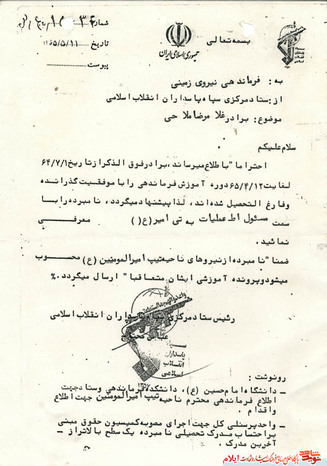 بسمه تعالی
جمهوری اسلامی ایران
شماره
تاریخ ۶۵/۵/۱۱
پیوست
به : فرماندهی نیروی زمینی
از : ستاد مرکزی سپاه پاسداران انقلاب اسلامی
موضوع : برادر غلامرضا ملاحی
سلام علیکم
احتراما" باطلاع میرساند، برادر فوق الذکر از تاریخ ۶۴/۷/۱
لغایت ۶۵/۴/۱۲ دوره آموزش فرماندهی را با موفقیت گذرانده
و فارغ التحصیل شده اند، لذا پیشنهاد میگردد، نامبرده را با
سمت مسئول اطلاعات عملیات به تیپ امیر (ع) معرفی
نمائید.
ضمنا" نامبرده از نیروهای ناحیه تیپ امیرالمومنین (ع) محسوب
میشود و پرونده آموزشی ایشان متعاقبا" ارسال میگردد.%
رئیس ستاد مرکزی سپاه پاسداران انقلاب اسلامی
سپاه
پاسداران
انقلاب
اسلامی
رونوشت :
– دانشگاه امام حسین (ع)، دانشکده فرماندهی و ستاد جهت
اطلاع فرماندهی محترم ناحیه تیپ امیرالمومنین جهت اطلاع
و اقدام.
– واحد پرسنلی کل جهت اجرای مصوبه کمیسیون حقوق مبنی
بر احتساب مدرک تحصیلی نامبرده یک سطح بالاتر از
آخرین مدرک.
ایلام